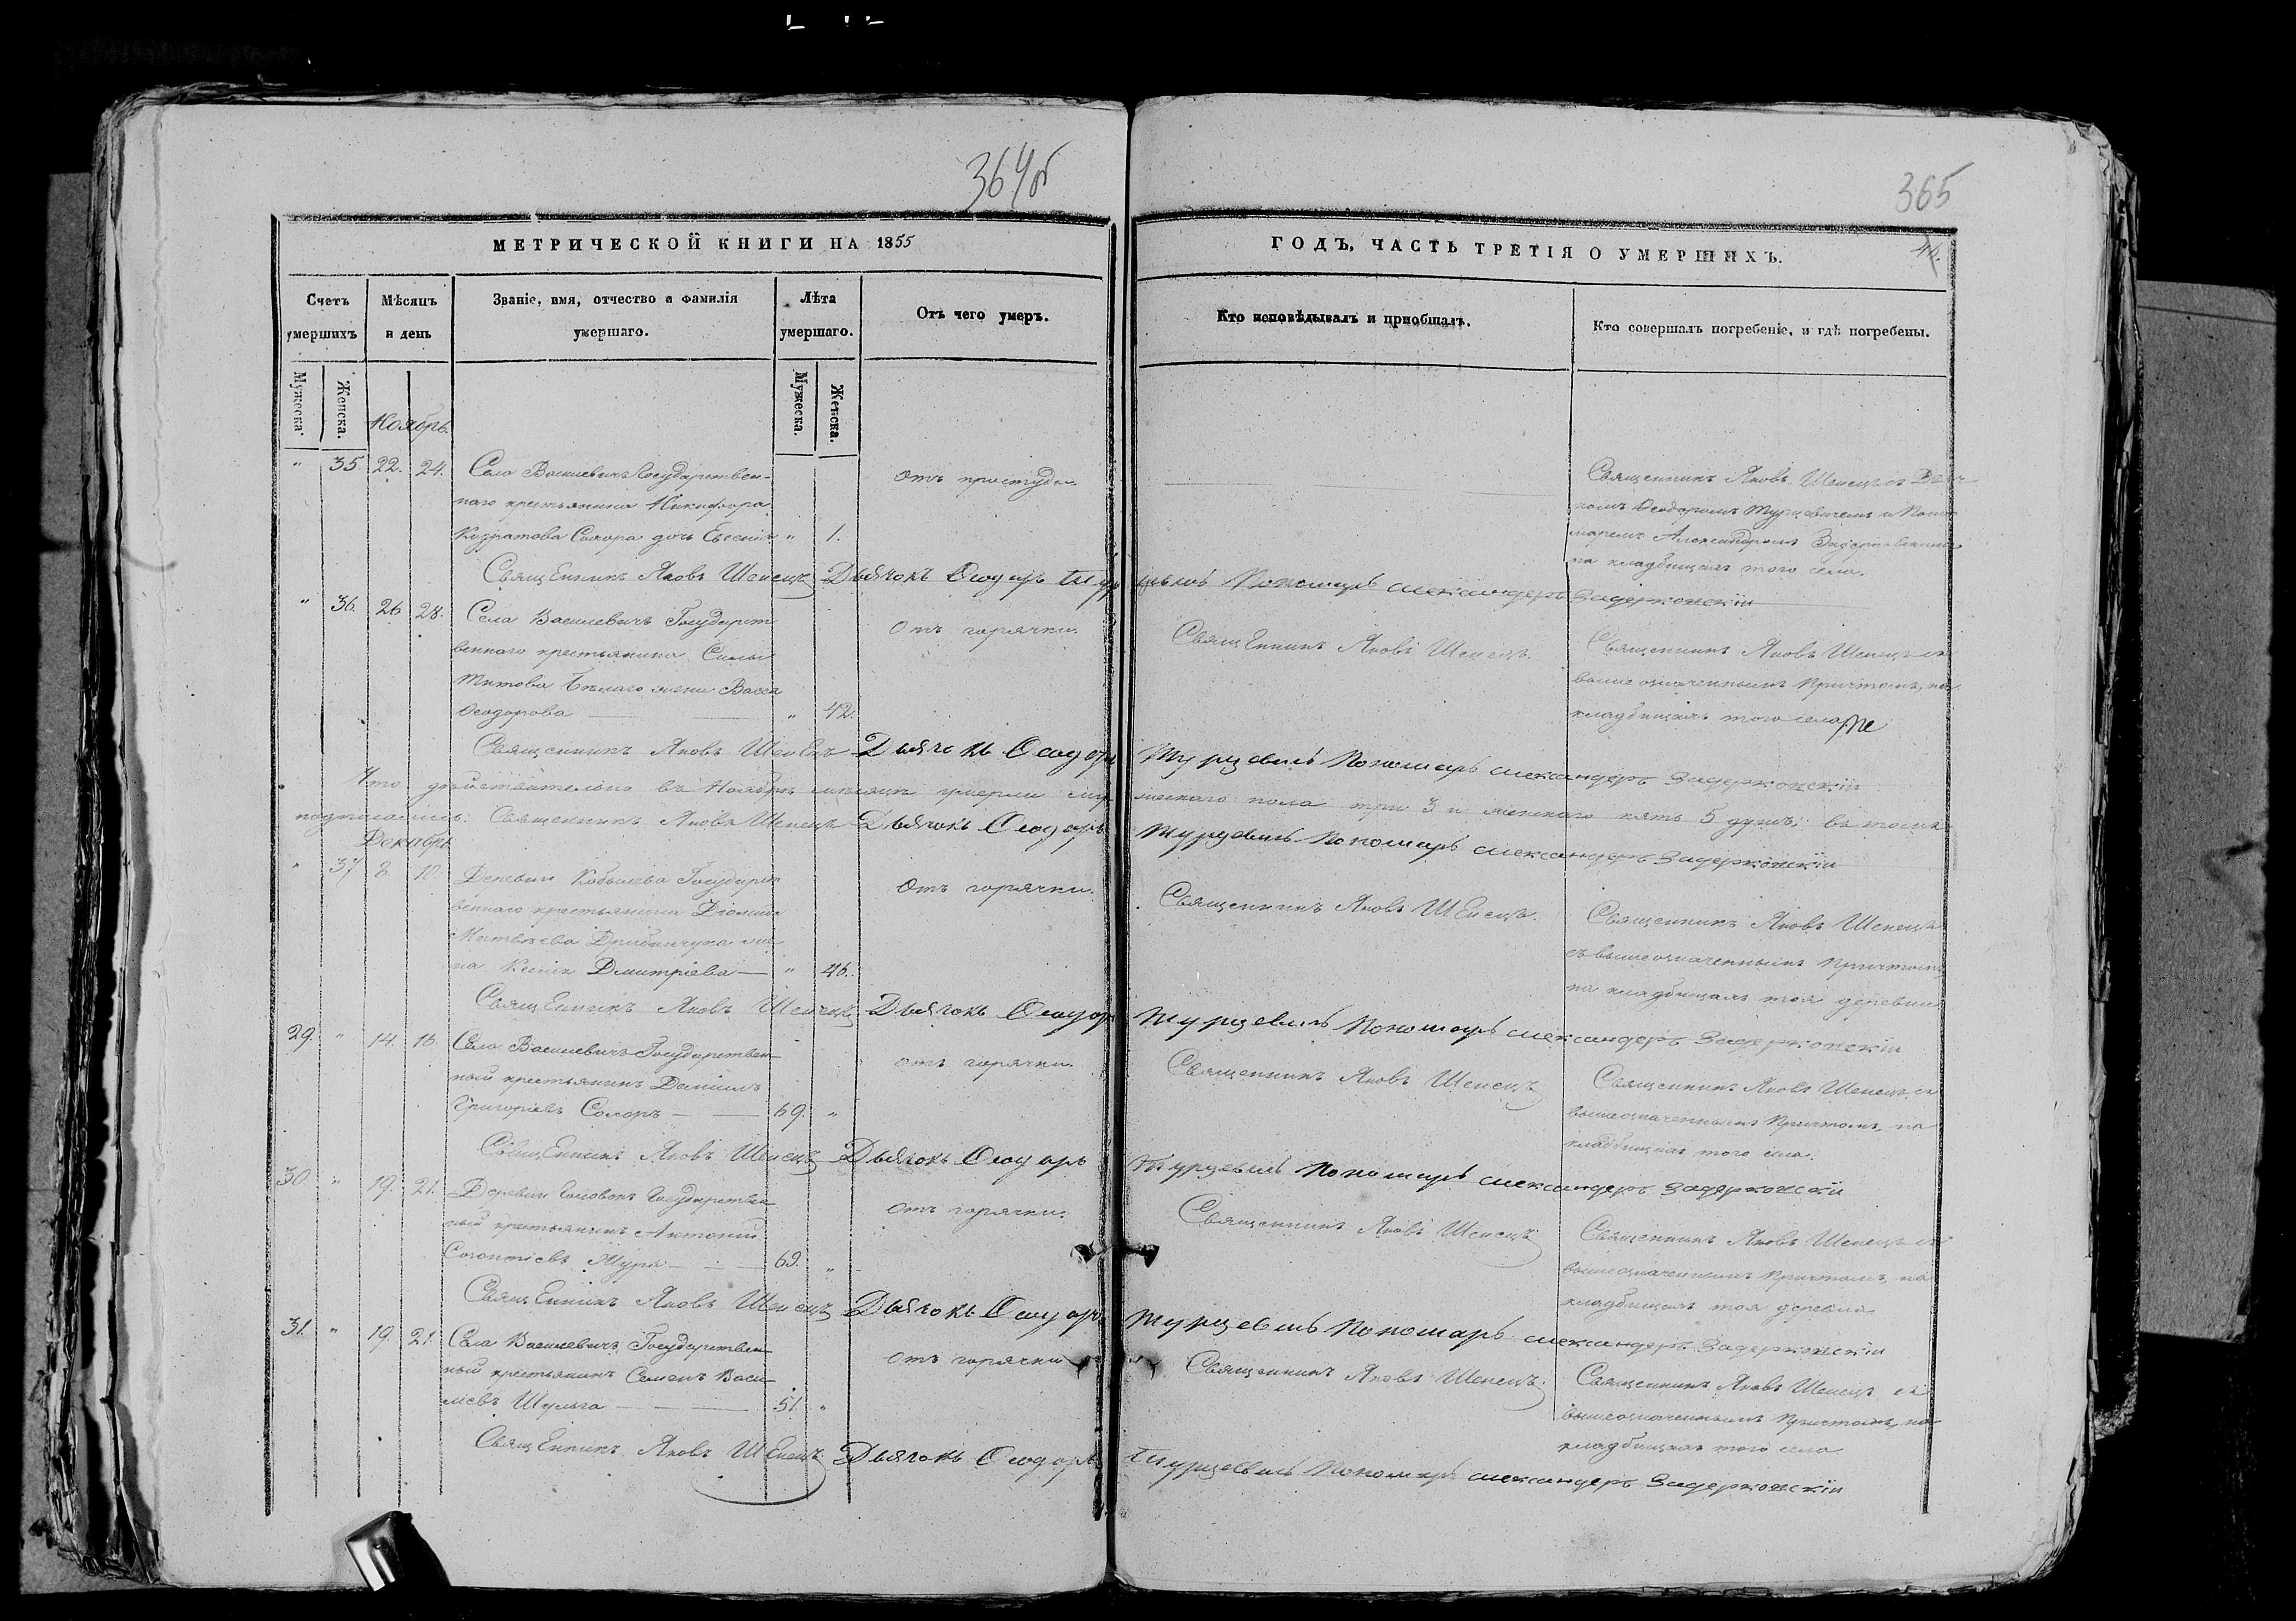 364б
365
МЕТРИЧЕСКОЙ КНИГИ НА 1855
ГОДЪ, ЧАСТЬ ТРЕТІЯ О УМЕРШИХЪ.
Счетъ умершихъ
Мѣсяцъ и день
Званіе, имя, отчество и фамилія умершаго.
Лѣта умершаго.
Отъ чего умеръ.
Кто исповѣдывалъ и пріобщалъ.
Кто совершалъ погребеніе, и гдѣ погребены.
Мужеска. Женска.
Мужеска. Женска.
Ноябрь
" 35. 22. 24. Села Василевичъ Государствен-
наго крестьянина Никифора
Кондратова Сыдора дочь Евгенія " 1.
Отъ простуды
Священникъ Яковъ Шенецъ съ Дьяч-
комъ Ѳеодоромъ Турцевичемъ и Поно-
маремъ Александромъ
на кладбищахъ того села.
Священникъ Яковъ Шенецъ Дьячокъ Ѳеодоръ Турцевичъ Пономарь Александеръ Задерковскій
" 36. 26 28. Села Василевичъ Государст
веннаго крестьянина Силы
Титова Бѣлаго жена Васса
Ѳеодорова " 42.
Отъ горячки.
Священникъ Яковъ Шенецъ.
Священникъ Яковъ Шенецъ съ
вышеозначеннымъ причтомъ, на
кладбищахъ того села
Священникъ Яковъ Шенецъ Дьячокъ Ѳеодоръ Турцевичъ Пономарь Александеръ Задерковскій
Что дѣйствительно въ Ноябрѣ мѣсяцѣ умерли мужескаго пола три 3 и женскаго пять 5 душъ; въ томъ
подписались: Священникъ Яковъ Шенецъ Дьячокъ Ѳеодоръ Турцевичъ Пономарь Александеръ Задерковскій
Декабрь
" 37 8. 10. Деревни Кобылева Государст
веннаго крестьянина
Матвѣева же-
на Ксенія Дмитріева " 46.
Отъ горячки.
Священникъ Яковъ Шенецъ.
Священникъ Яковъ Шенецъ
съ вышеозначеннымъ причтомъ
на кладбищахъ тоя деревни
Священникъ Яковъ Шенецъ Дьячокъ Ѳеодоръ Турцевичъ Пономарь Александеръ Задерковскій
29. " 14. 16. Села Василевичъ Государствен-
ный крестьянинъ Даніилъ
Григоріевъ 69. "
отъ горячки.
Священникъ Яковъ Шенецъ
Священникъ Яковъ Шенецъ съ
вышеозначеннымъ причтомъ, на
кладбищахъ того села.
Священникъ Яковъ Шенецъ Дьячокъ Ѳеодоръ Турцевичъ Пономарь Александеръ Задерковскій
30. " 19. 21. Деревни Государствен-
ный крестьянинъ Антоній
Мура 69. "
Отъ горячки.
Священникъ Яковъ Шенецъ
Священникъ Яковъ Шенецъ съ
вышеозначеннымъ причтомъ, на
кладбищахъ тоя деревни
Священникъ Яковъ Шенецъ Дьячокъ Ѳеодоръ Турцевичъ Пономарь Александеръ Задерковскій
31. " 19. 21. Села Василевичъ Государствен-
ный крестьянинъ Семенъ Васи-
лiевъ Шульга 51. "
отъ горячки
Священникъ Яковъ Шенецъ
Священникъ Яковъ Шенецъ съ
вышеозначеннымъ причтомъ, на
кладбищахъ того села
Священникъ Яковъ Шенецъ Дьячокъ Ѳеодоръ Турцевичъ Пономарь Александеръ Задерковскій